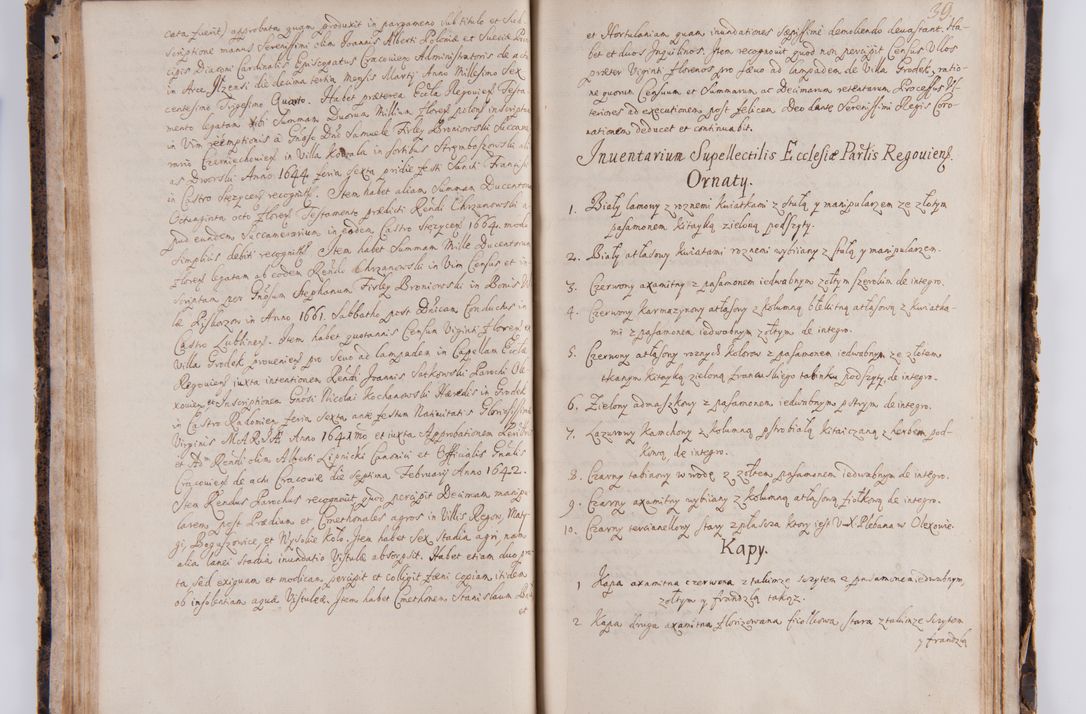 cata fuerit) approbata quam produxit in pargameno sub titulo et sub
scriptione manus Serenissimi olim Joannis Alberti Poloniæ et Sueciæ Prin
cipis Diaconi Cardinalis Episcopatus Cracovien Administratoris de
in Arce Ilzensi die decima tertia Mensis Martii Anno Millesimo Sex
centesimo Trigesimo Quarto. Habet præterea Eccla Regovien Testa
mento legatam sibi Summam Duorum Millium Floren polon inscriptam
in Vim reemptionis a Gnoso Dno Samuele Firley Broniowski Succame
rario Czerniechovien in Villa Kowala in sortibus Strzmboszowska ali
as Dworski Anno 1644 feria sexta pridie festi Sancti Francisci
in Castro Stezycen recognit. Item habet aliam Summam Ducentorum
Octuaginta octo Floren Testamento prædicti Rendi Chrzanowski a
pud eundem Succamerarium in eodem Castro Stezycen 1664. modo
simplicis debiti recognit. Item habet Summam Mille Ducentorum
Floren legatam ab eodem Rendo Chrzanowski in Vim Census et in
scriptam per Gnosum Stephanum Firley Broniowski in Bonis Vil
læ Piskorzow in Anno 1661. Sabbatho post Dnicam Conductus in
Castro Lublinen. Item habet quotannis Censum Viginti Floren ex
Villa Grodek provenien pro sevo ad lampadem in Capellam Ecclæ
Regovien juxta intentionem Rendi Joannis Sutkowski Parochi Ole
xovien et Inscriptionem Gnosi Nicolai Kochanowski Hæredis in Grodek
in Castro Radomien feria Sexta ante festum Nativitatis Gloriosissimæ
Virginis MARIÆ Anno 1641mo et iuxta Approbationem
et Adm Rendi olim Alberti Lipnicki Canonici et Officialis Gnalis
Cracovien de actu Cracoviæ die septima Februarij Anno 1642.
Item Rendus Parochus recognovit, quod percipit Decimam manipu
larem post Prædium et Cmethonales agros in Villis Regow, Maty
gi, Boguszowice, et Wysokie Koło. Item habet Sex stadia agri, nam
alia lanei stadia inundatio Vistulæ absorpsit. Habet etiam duo pra
ta sed exiguam et modicam percipit et colligit fæni copiam itidem
ob insolentiam aquæ Vistuleæ. Item habet Cmethonem Stanislaum
et
39.
et Hortulaniam quam inundationes sæpissime demoliendo devastant. Ha
bet et duos Inquilinos. Item recognovit quod non percipit Census Ullos
præter Viginti Florenos pro sæuo ad lampadem de Villa Grodek, ratio
ne quorum Censuum et Summarum ac Decimarum retentarum Processus Ul
teriores ad executionem post felicem Deo dante Serenissimi Regis Coro
nationem deducet et continuabit.
Inventarium Supellectilis Ecclesiæ Parlis Regouien.
Ornaty.
1. Biały lamowy z roznemi kwiatkami z stułą y manipularzem ze złotym
pasamonem kitayką zieloną podszyty.
2. Biały atłasowy kwiatami roznemi wybiiany z stułą y manipularzem.
3. Czerwony axamitny z pasamonem iedwabnym zołtym szerokim de integro.
4. Czerwony karmazynowy atłasowy z kolumną błękitną atłasową z kwiatka-
mi z pasamonem iedwabnym zołtym de integro.
5. Czerwony atłasowy roznych kolorow z pasamonem iedwabnym ze złotem
tkanym kitayką zieloną francuskiego tabinku podszyty, de integro.
6. Zielony adamaszkowy z pasamonem iedwabnym pstrym de integro.
7. Lazurowy kamchowy z kolumną pstrobiałą kitaiczaną z herbem pod-
kową, de integro.
8. Czarny tabinowy w wodę z zołtem pasamonem iedwabnym de integro.
9. Czarny axamitny wybiiany z kolumną atłasową fiołkową de integro.
10. Czarny tercinnellowy stary z płascza ktory iest U X. Plebana w Olexowie.
Kapy.
1 Kapa axamitna czerwona z tabinze scrytem z pasamonem iedwabnym
zołtym y frandzlą takąz.
2 Kapa druga axamitna florizowana fiołkowa stara z tabinze scrytem
y frandzlą